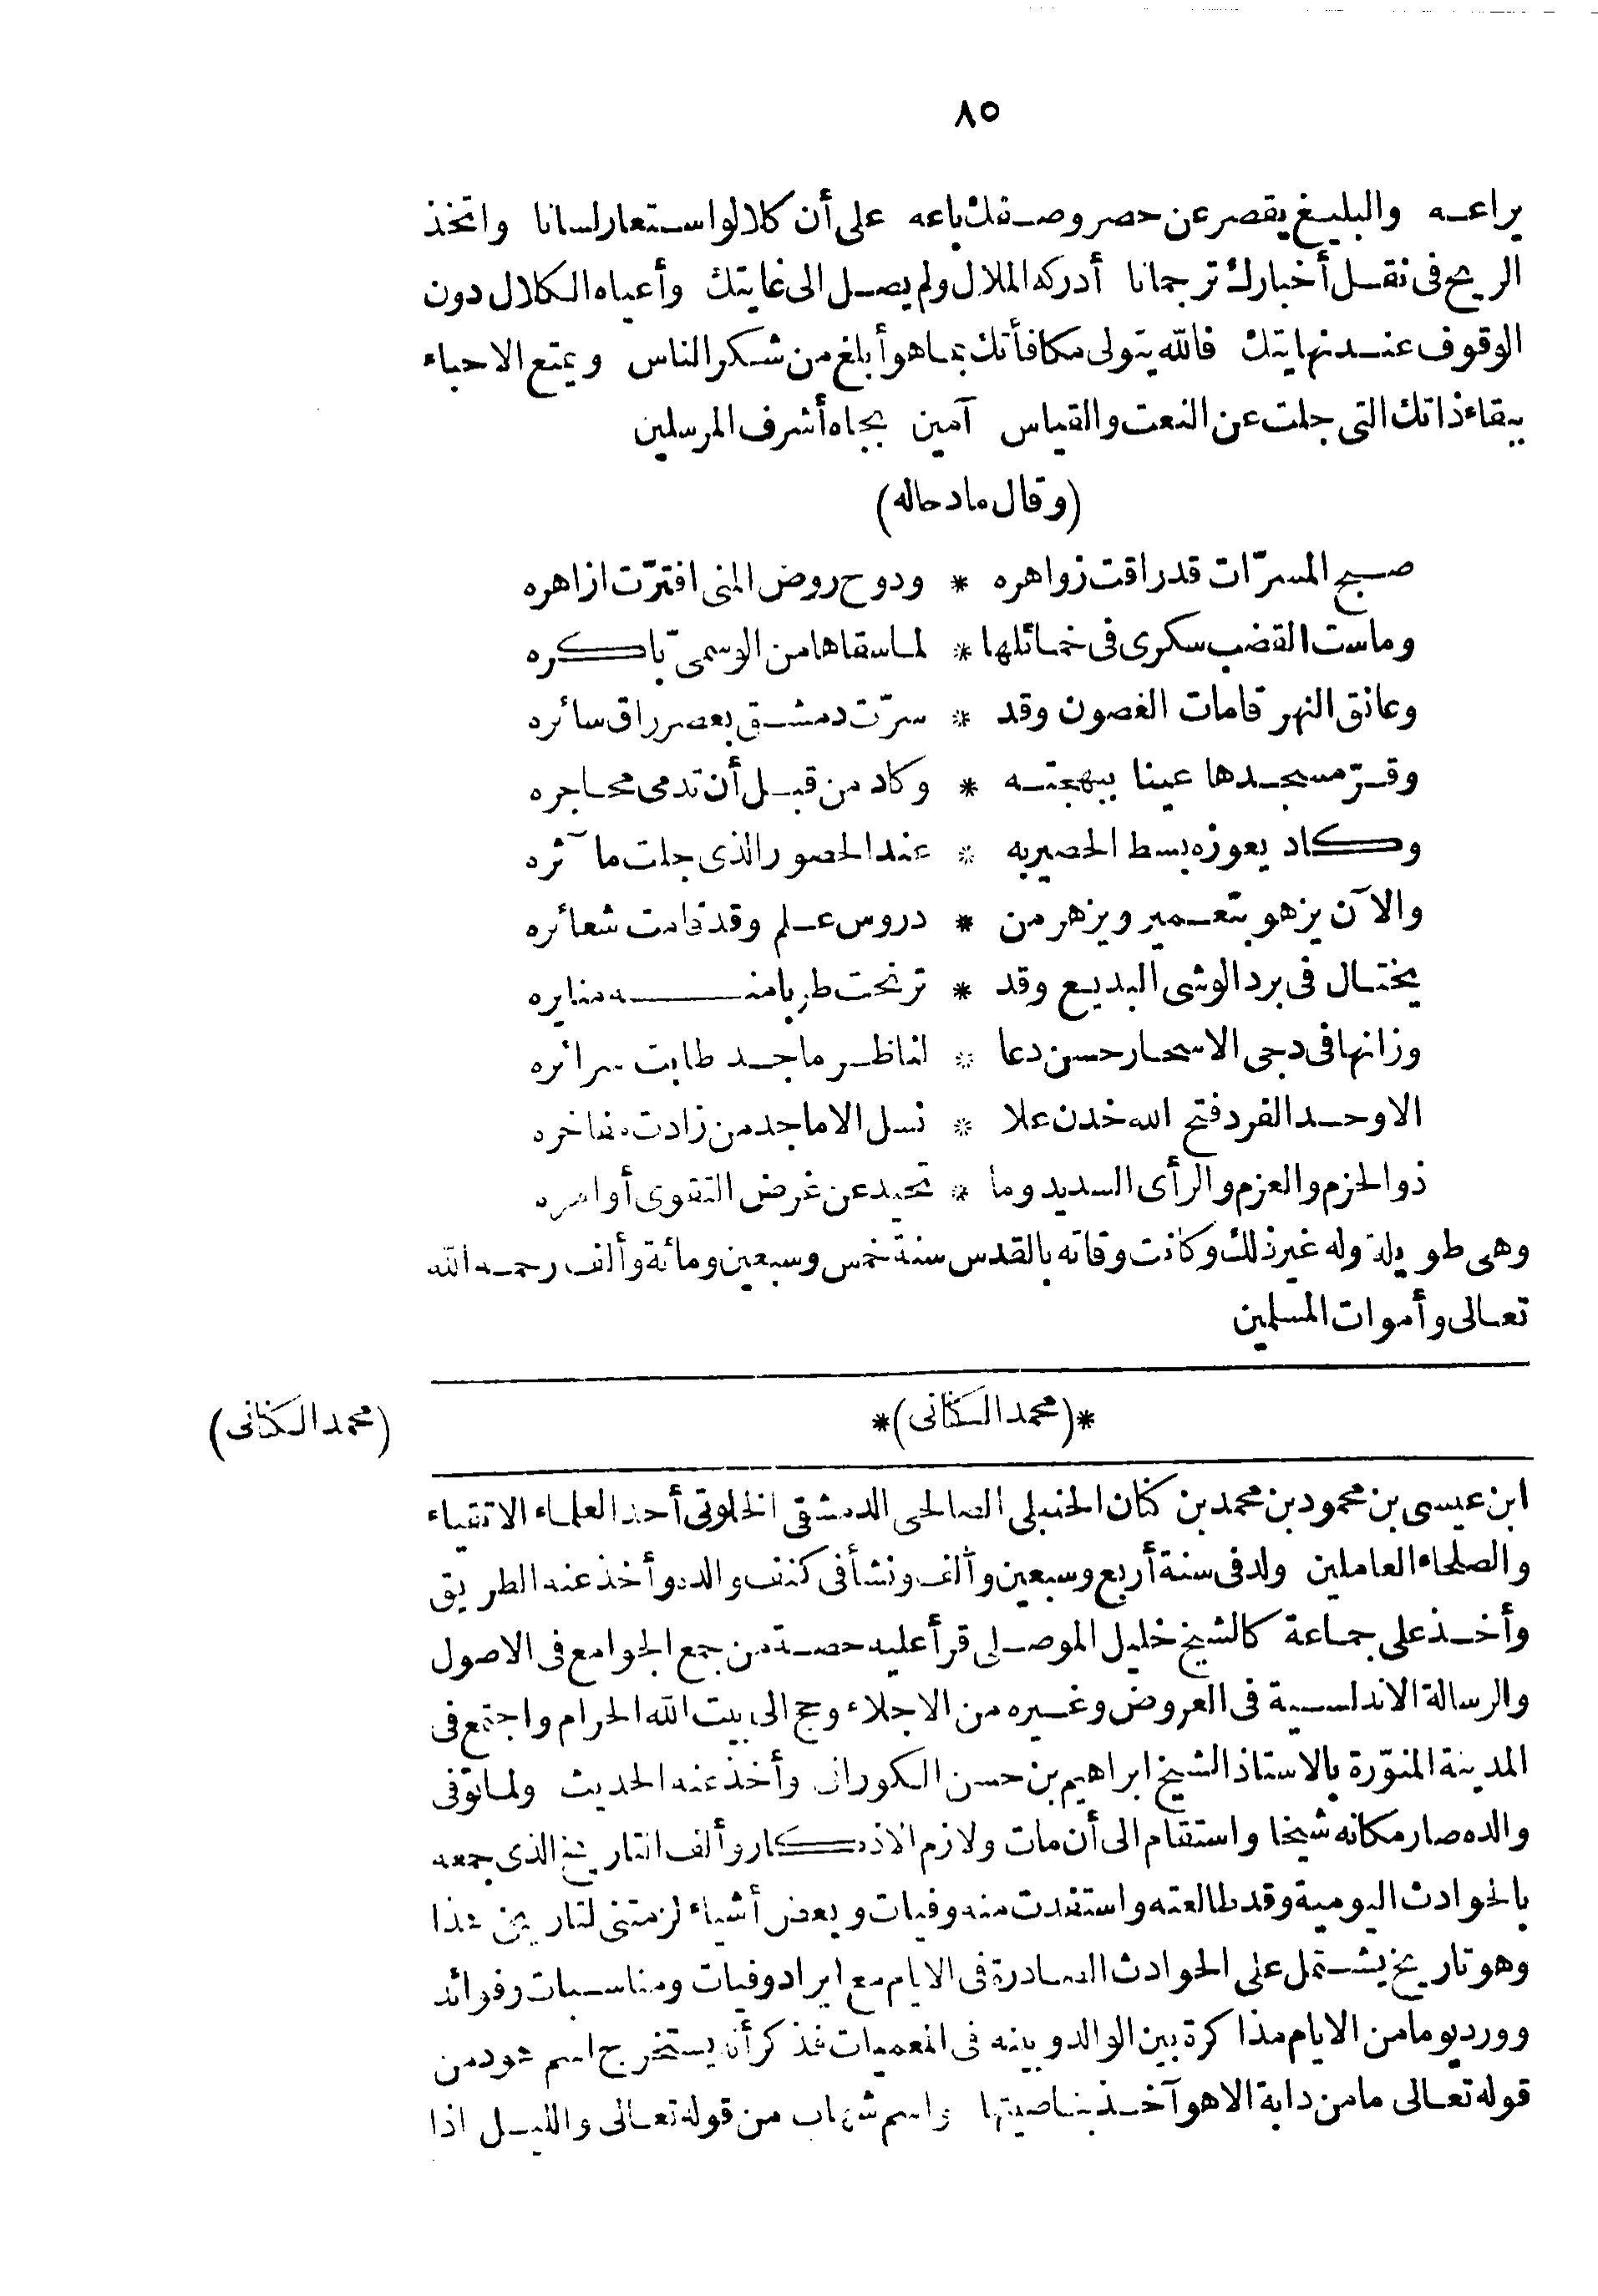 ٨٥
يراعه والبليغ يقصر عن حصر وصفك باعه على أن كلا لو استعار لسانا واتخذ
الريح فى نقل أخبارك ترجمانا أدركه الملال ولم يصل الى غايتك وأعياه الكلال دون
الوقوف عند نهايتك فالله يتولى مكافأتك بما هو أبلغ من شكر الناس ويمتع الاحباء
ببقاء ذاتك التى جلت عن النعت والقياس آمين بجاه أشرف المرسلين
(وقال مادحاله)
صبح المسرّات قد راقت زواهره * ودوح روض المنى افترّت ازاهره
وماست القضب سكرى فى خمائلها * لما سقاها من الوسمىّ باكره
وعانق النهر قامات الغصون وقد * سرّت دمشق بعصر راق سائره
وقرّ مسجدها عينا ببهجته * وكاد من قبل أن تدمى محاجره
وكاد يعوزه بسط الحصير به * عند الحصور الذى جلت مآثره
والآن يزهو بتعمير ويزهر من * دروس علم وقد قامت شعائره
يختال فى برد الوشى البديع وقد * ترنحت طربا منه منابره
وزانها فى دجى الاسحار حسن دعا * لناظر ماجد طابت سرائره
الاوحد الفرد فتح الله خدن علا * نسل الاماجد من زادت مفاخره
ذو الحزم والعزم والرأى السديد وما * تحيد عن غرض التقوى أوامره
وهى طويلة وله غير ذلك وكانت وفاته بالقدس سنة خمس وسبعين ومائة وألف رحمه الله
تعالى وأموات المسلمين
*(محمد الكنانى)*
(محمد الكنانى)
ابن عيسى بن محمود بن محمد بن كنان الحنبلى الصالحى الدمشقى الخلوتى أحد العلماء الاتقياء
والصلحاء العاملين ولد فى سنة أربع وسبعين وألف ونشأ فى كنف والده وأخذ عنه الطريق
وأخذ على جماعة كالشيخ خليل الموصلى قرأ عليه حصة من جمع الجوامع فى الاصول
والرسالة الاندلسية فى العروض وغيره من الاجلاء وحج الى بيت الله الحرام واجتمع فى
المدينة المنوّرة بالاستاذ الشيخ ابراهيم بن حسن الكورانى وأخذ عنه الحديث ولما توفى
والده صار مكانه شيخا واستقام الى أن مات ولازم الاذكار وألف التاريخ الذى جمعه
بالحوادث اليومية وقد طالعته واستفدت منه وفيات وبعض أشياء لزمتنى لتاريخى هذا
وهو تاريخ يشتمل على الحوادث الصادرة فى الايام مع ايراد وفيات ومناسبات وفوائد
وورد يوما من الايام مذاكرة بين الوالد وبينه فى المعميات فذكر أنه يستخرج اسم هود من
قوله تعالى ما من دابة الا هو آخذ بناصيتها واسم شهاب من قوله تعالى والليل اذا